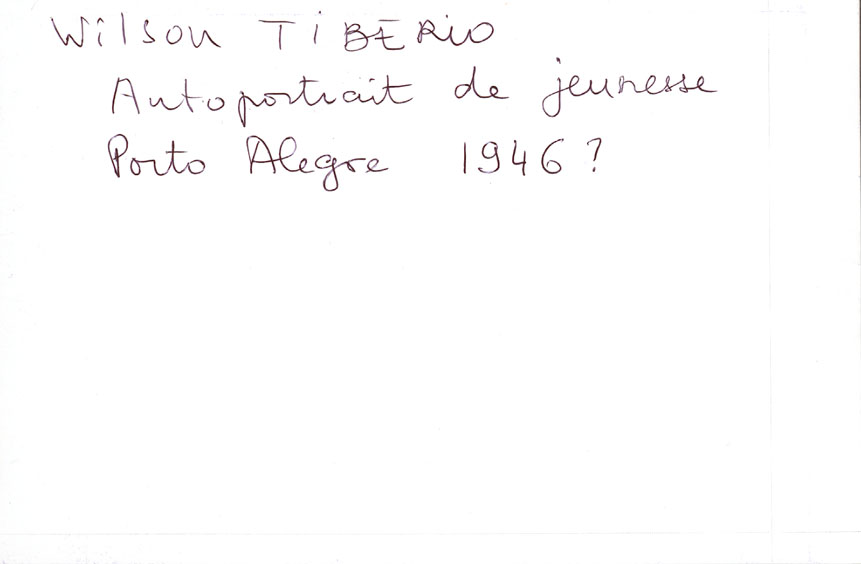 Wilson TIBERIO
Autoportrait de jeunesse
Porto Alegre 1946?